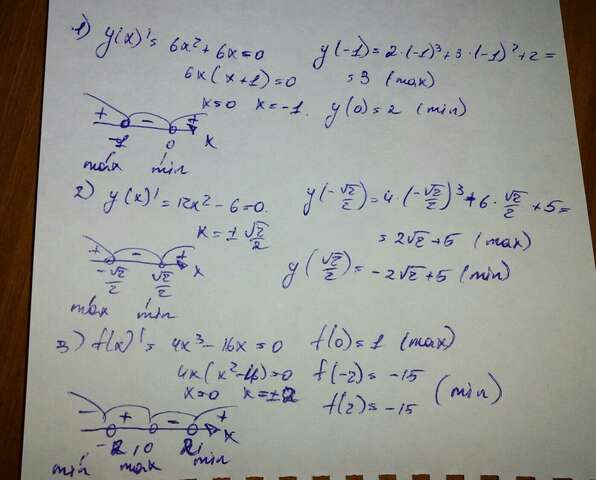 1) y(x)' = 6x² + 6x = 0
6x(x+1) = 0
x = 0 x = -1.
y(-1) = 2·(-1)³ + 3·(-1)² + 2 =
= 3 (max)
y(0) = 2 (min)
+ - +
-1 0 x
max min
2) y(x)' = 12x² - 6 = 0.
x = ± √2/2
y(-√2/2) = 4·(-√2/2)³ + 6·√2/2 + 5 =
= 2√2 + 5 (max)
y(√2/2) = -2√2 + 5 (min)
+ - +
-√2/2 √2/2 x
max min
3) f(x)' = 4x³ - 16x = 0
4x(x² - 4) = 0
x = 0 x = ±2
f(0) = 1 (max)
f(-2) = -15
f(2) = -15
(min)
- + - +
-2 0 2 x
min max min